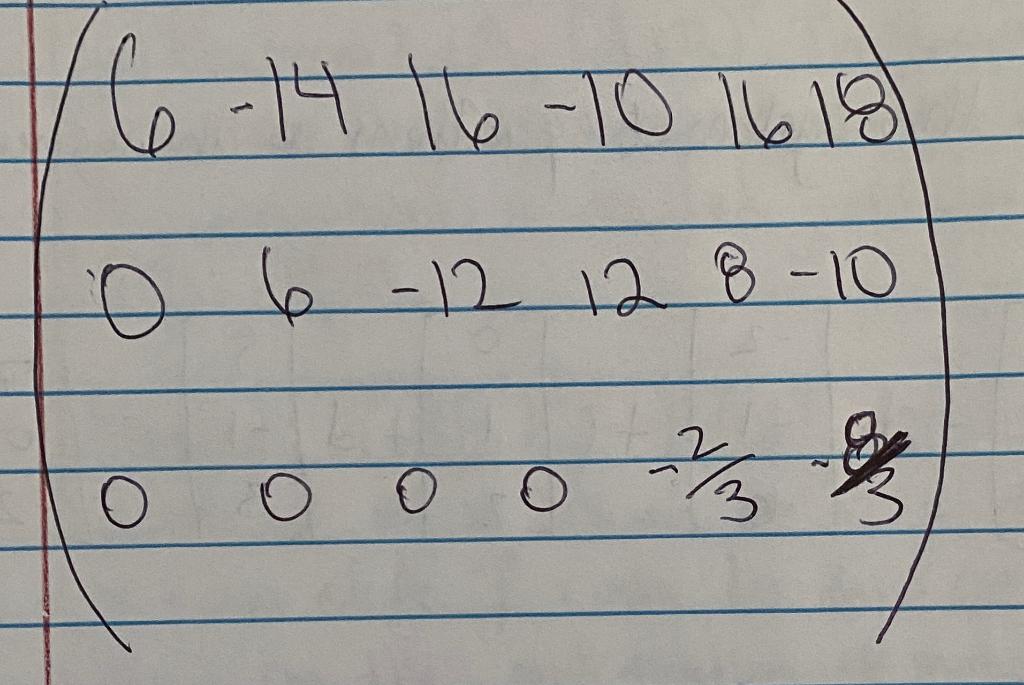 6 -14 16 -10 16 18
0 6 -12 12 8 -10
0 0 0 0 -2/3 -8/3